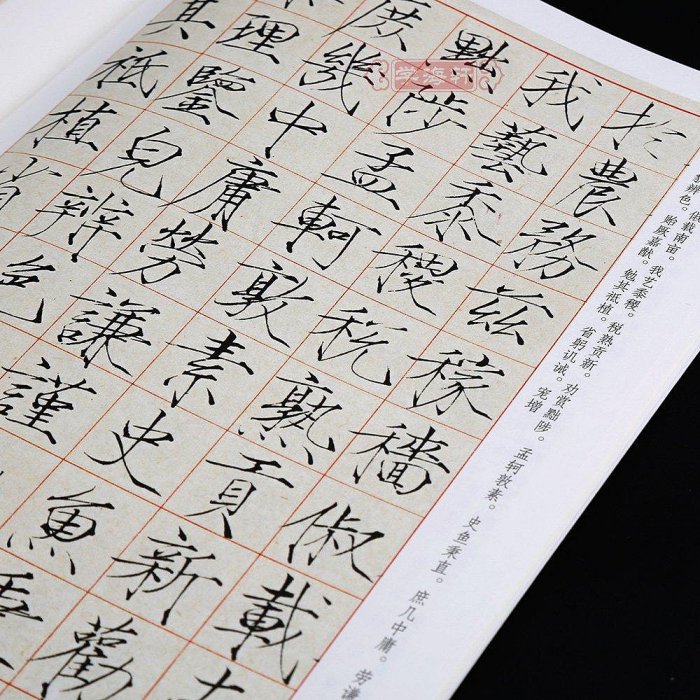 辨色。贻厥嘉猷。勉其祗植。省躬讥诫。宠增
俶载南亩。我艺黍稷。税熟贡新。劝赏黜陟。孟轲敦素。史鱼秉直。庶几中庸。劳谦
於農務茲稼穡俶載
我藝黍稷稅熟貢新勸
黜陟孟軻敦素史魚秉
庶幾中庸勞謙謹
理鑒皃辨色
其祗植省
学海轩